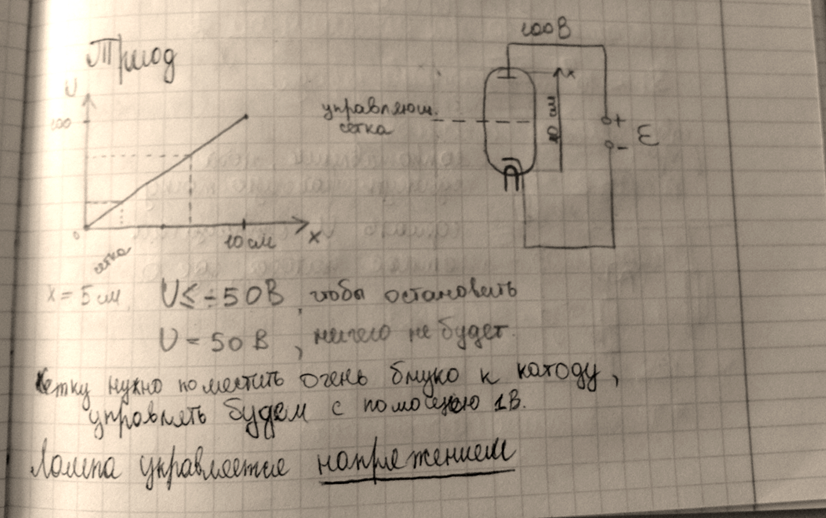 Триод
U
100
0
сетка
10 см
x
100В
управляющ.
сетка
x
+
-
ε
x = 5 см U ≤ -50В, чтобы остановить
U = 50В, ничего не будет.
Сетку нужно поместить очень близко к катоду,
управлять будем с помощью 1В.
Лампа управляется напряжением